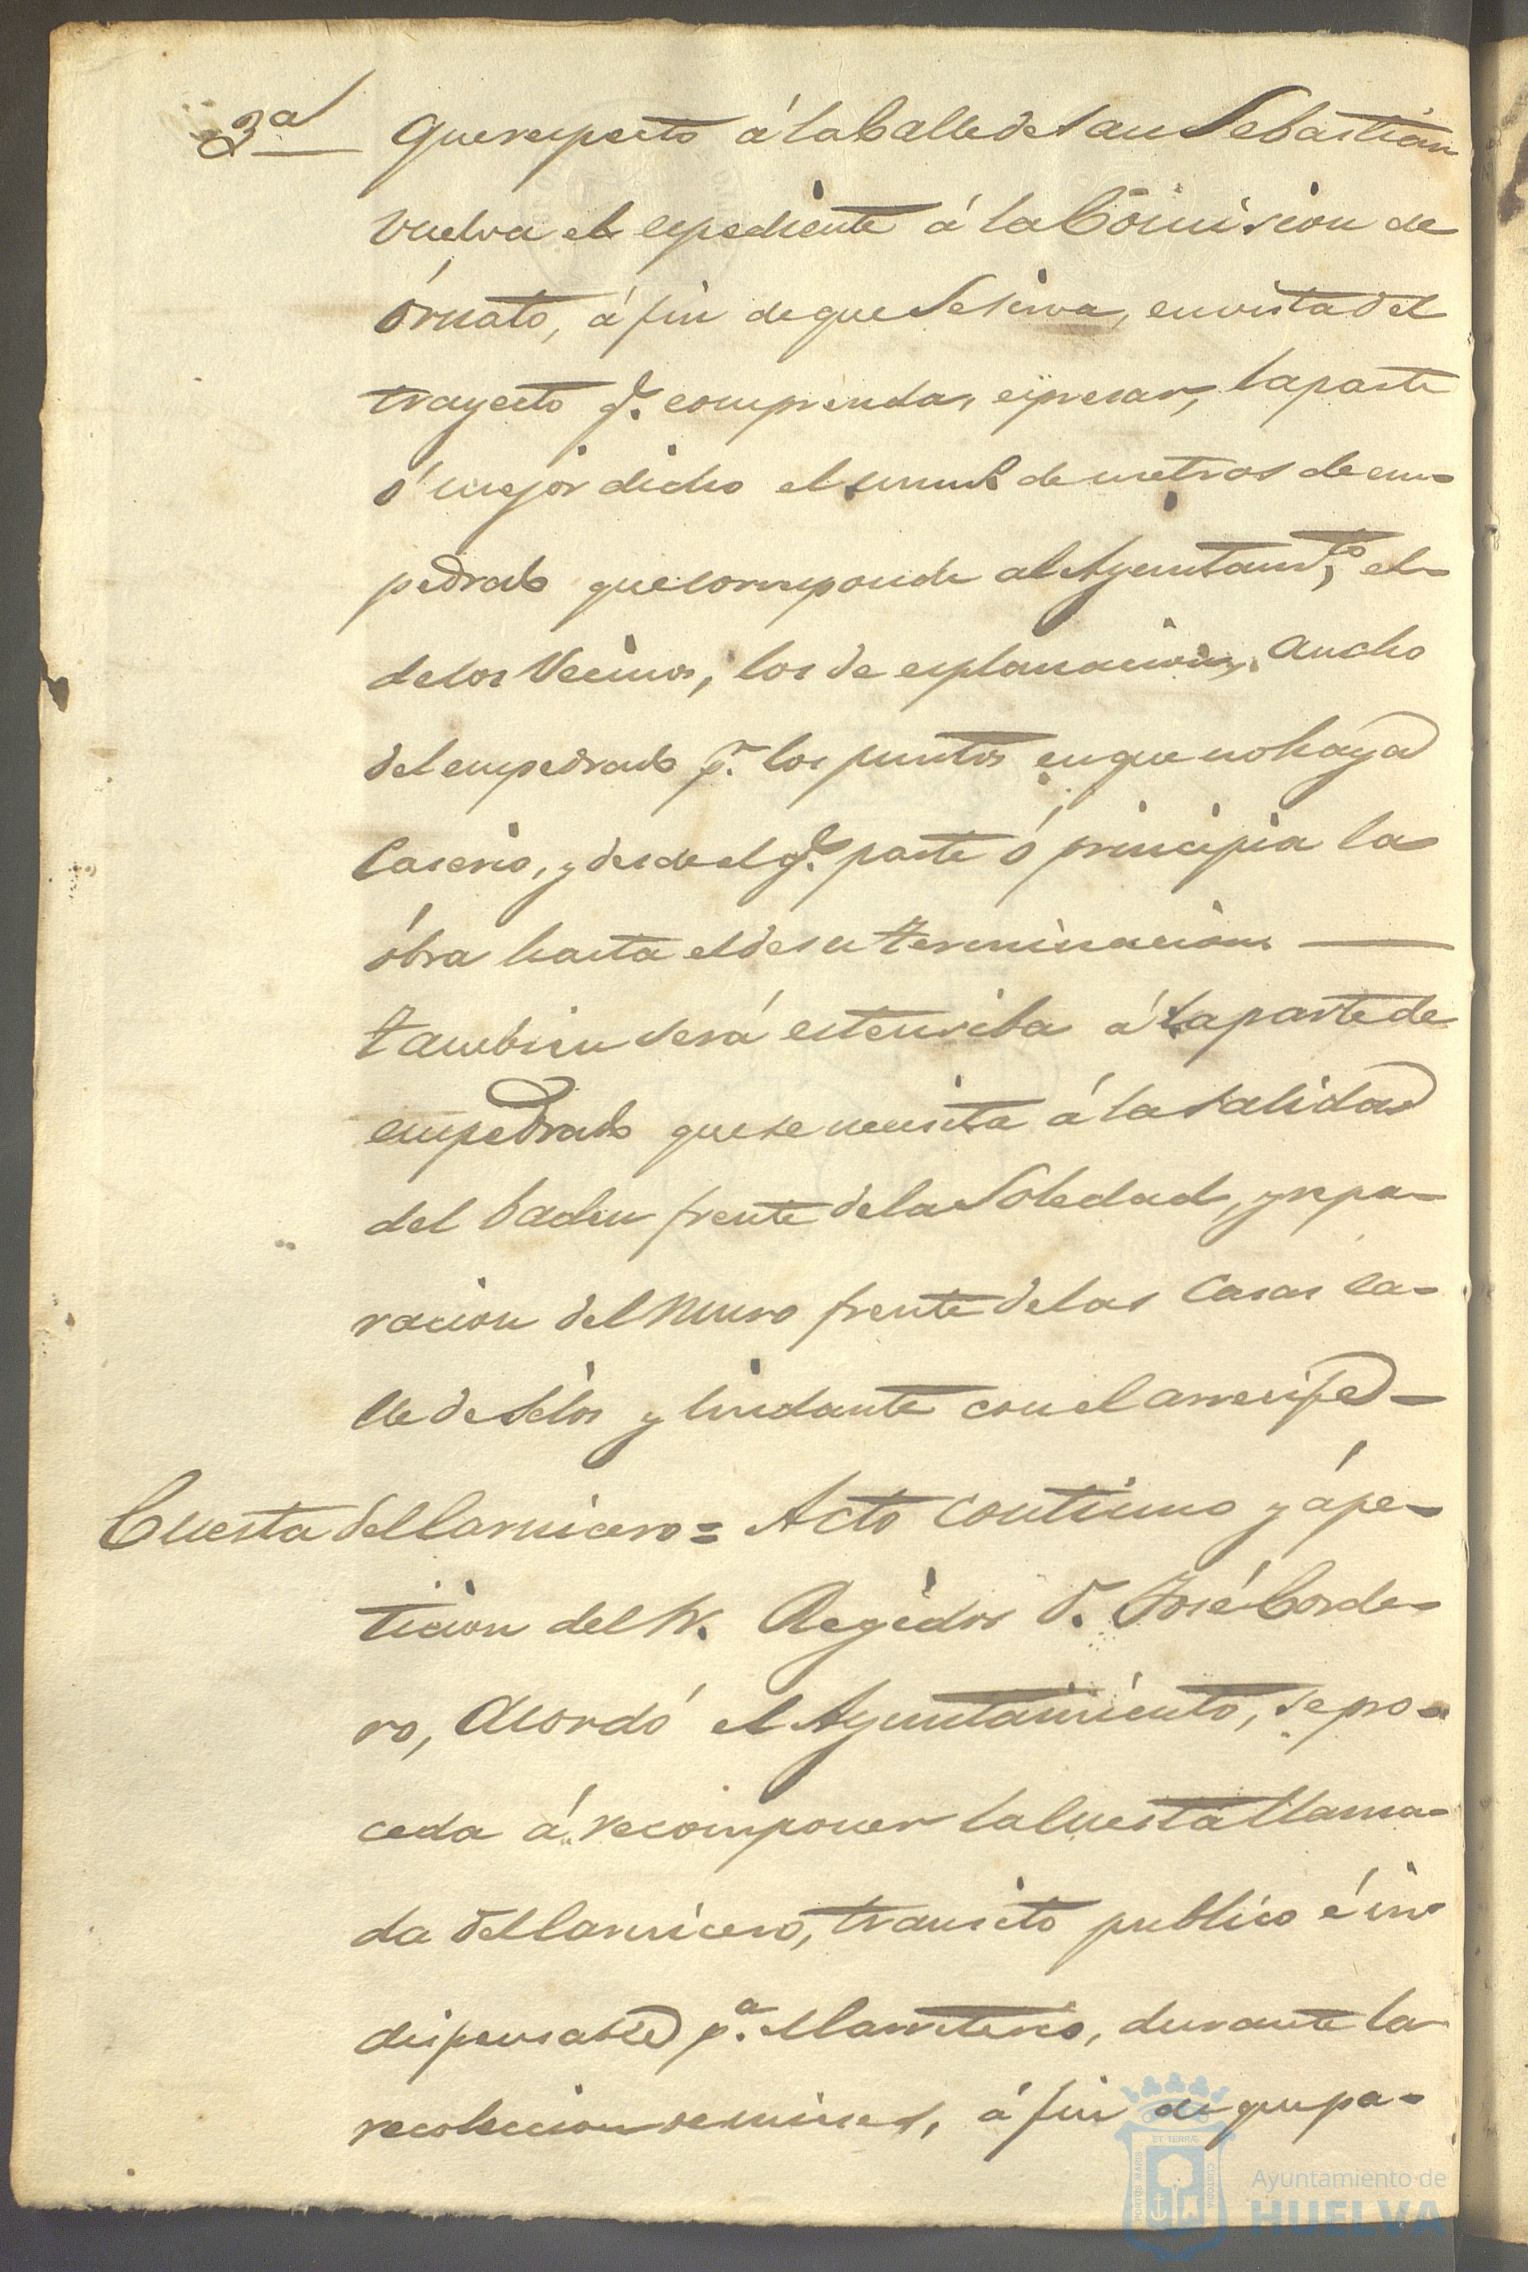 3ª Que respecto á la Calle de San Sebastian
vuelva el espediente á la Comision de
órnato, á fin de que se sirva, en vista del
trayecto q.e comprenda, espresar, la parte
ó mejor dicho el num.o de metros de em-
pedrado que corresponde al Ayuntam.to, el
de los Vecinos, los de esplanacion, ancho
del empedrado p.r los puntos en que no haya
Caserio, y desde el q.e parte ó principia la
óbra hasta el de su terminacion —
tambien será estensiba á la parte de
empedrado que se necesita á la salida
del baden frente de la Soledad, y repa-
racion del Muro frente de las Casas ca-
lle de Silos y lindante con el arrecife -
Cuesta del Carnicero = Acto continuo y á pe-
ticion del Sr. Regidor D. José Corde-
ro, acordó el Ayuntamiento, se pro-
ceda á recomponer la Cuesta llama-
da del Carnicero, transito publico é in-
dispensable p.a el Carreterio, durante la
recoleccion de mieses, á fin de que pa-
ET TERRÆ
PORTUS MARIS
CUSTODIA
Ayuntamiento de
HUELVA